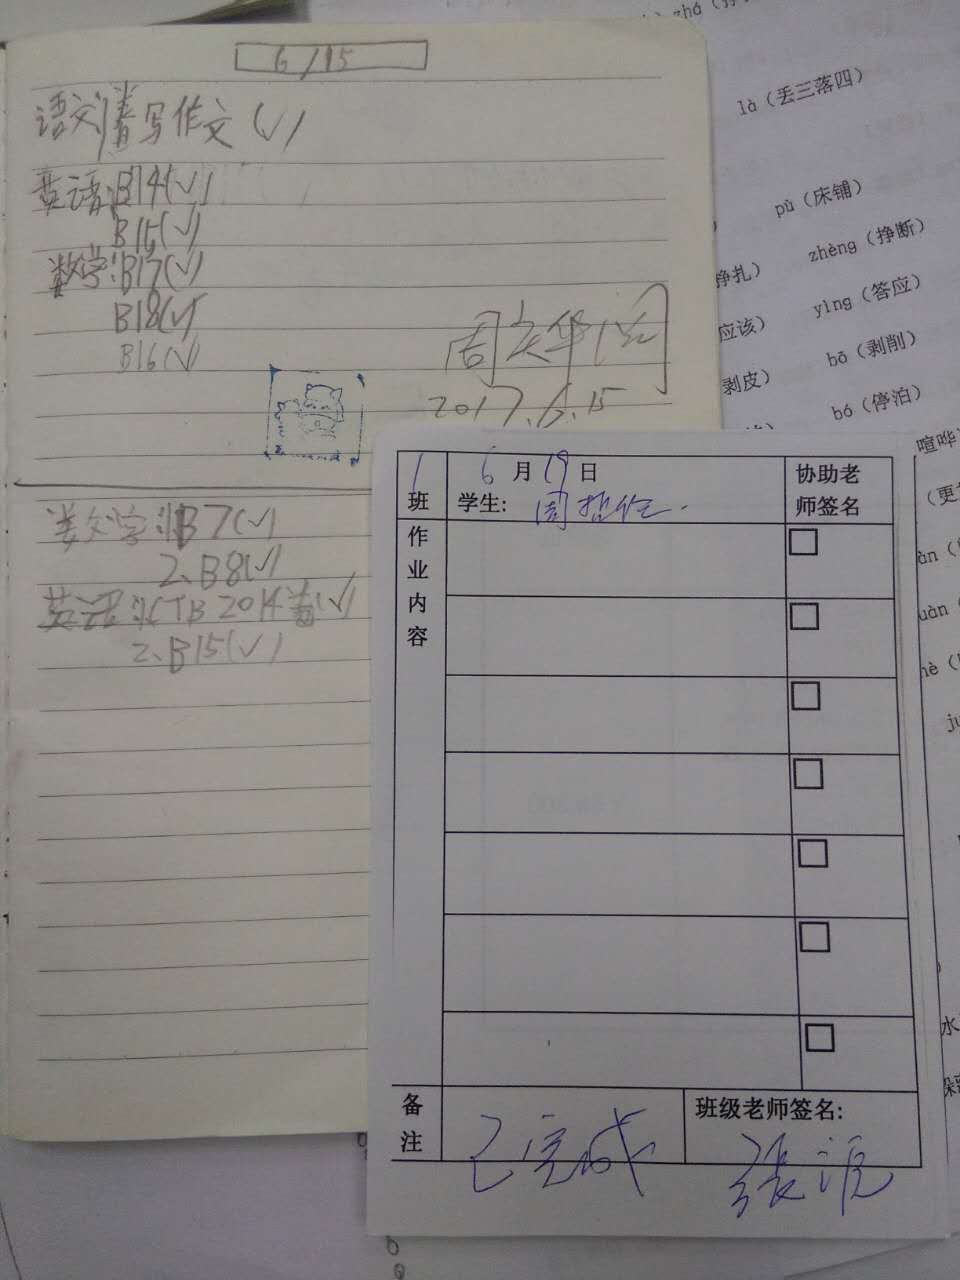 6/15
语文:写作文(√)
英语:B14(√)
B15(√)
数学:B17(√)
B18(√)
B16(√)
周庆华(阅)
2017.6.15
数学:1、B7(√)
2、B8(√)
英语:1、TB 2014(√)
2、B15(√)
1班
6月19日
学生:周
协助老师签名
作业内容
备注
已完成
班级老师签名:
张
zhá
là(丢三落四)
pù(床铺)
zhèng(挣断)
挣扎)
yìng(答应)
应该)
bō(剥削)
剥皮)
bó(停泊)
喧哗)